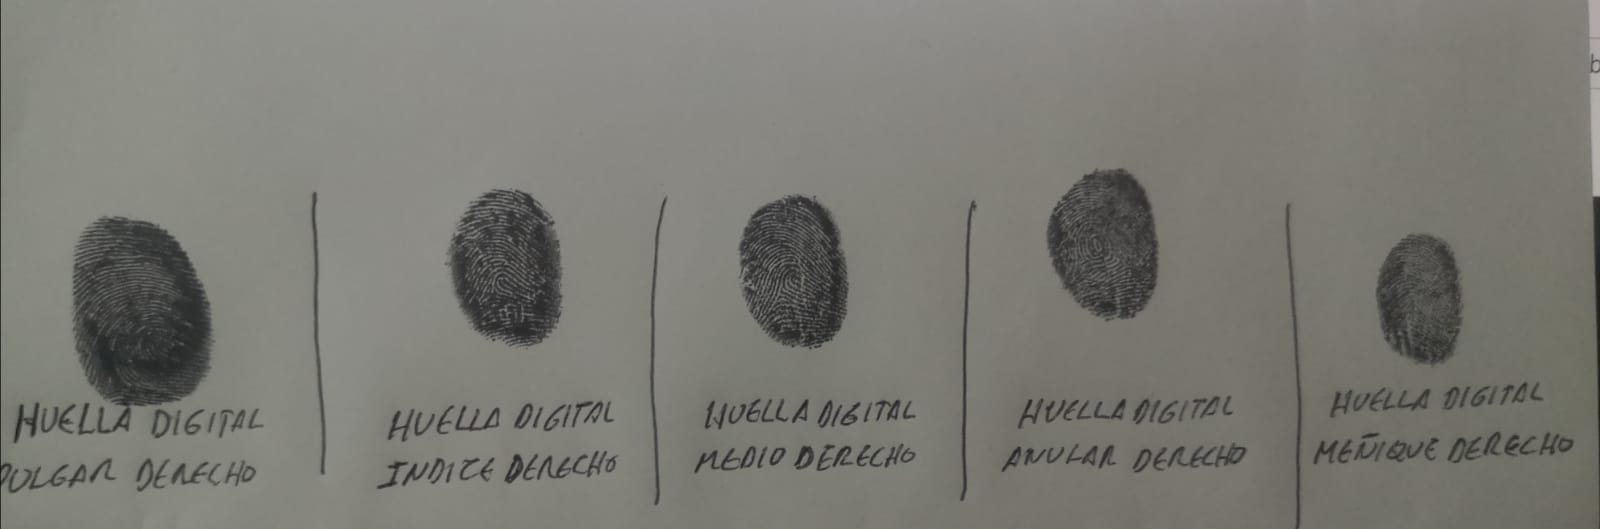 HUELLA DIGITAL
PULGAR DERECHO
HUELLA DIGITAL
INDICE DERECHO
HUELLA DIGITAL
MEDIO DERECHO
HUELLA DIGITAL
ANULAR DERECHO
HUELLA DIGITAL
MEÑIQUE DERECHO
b